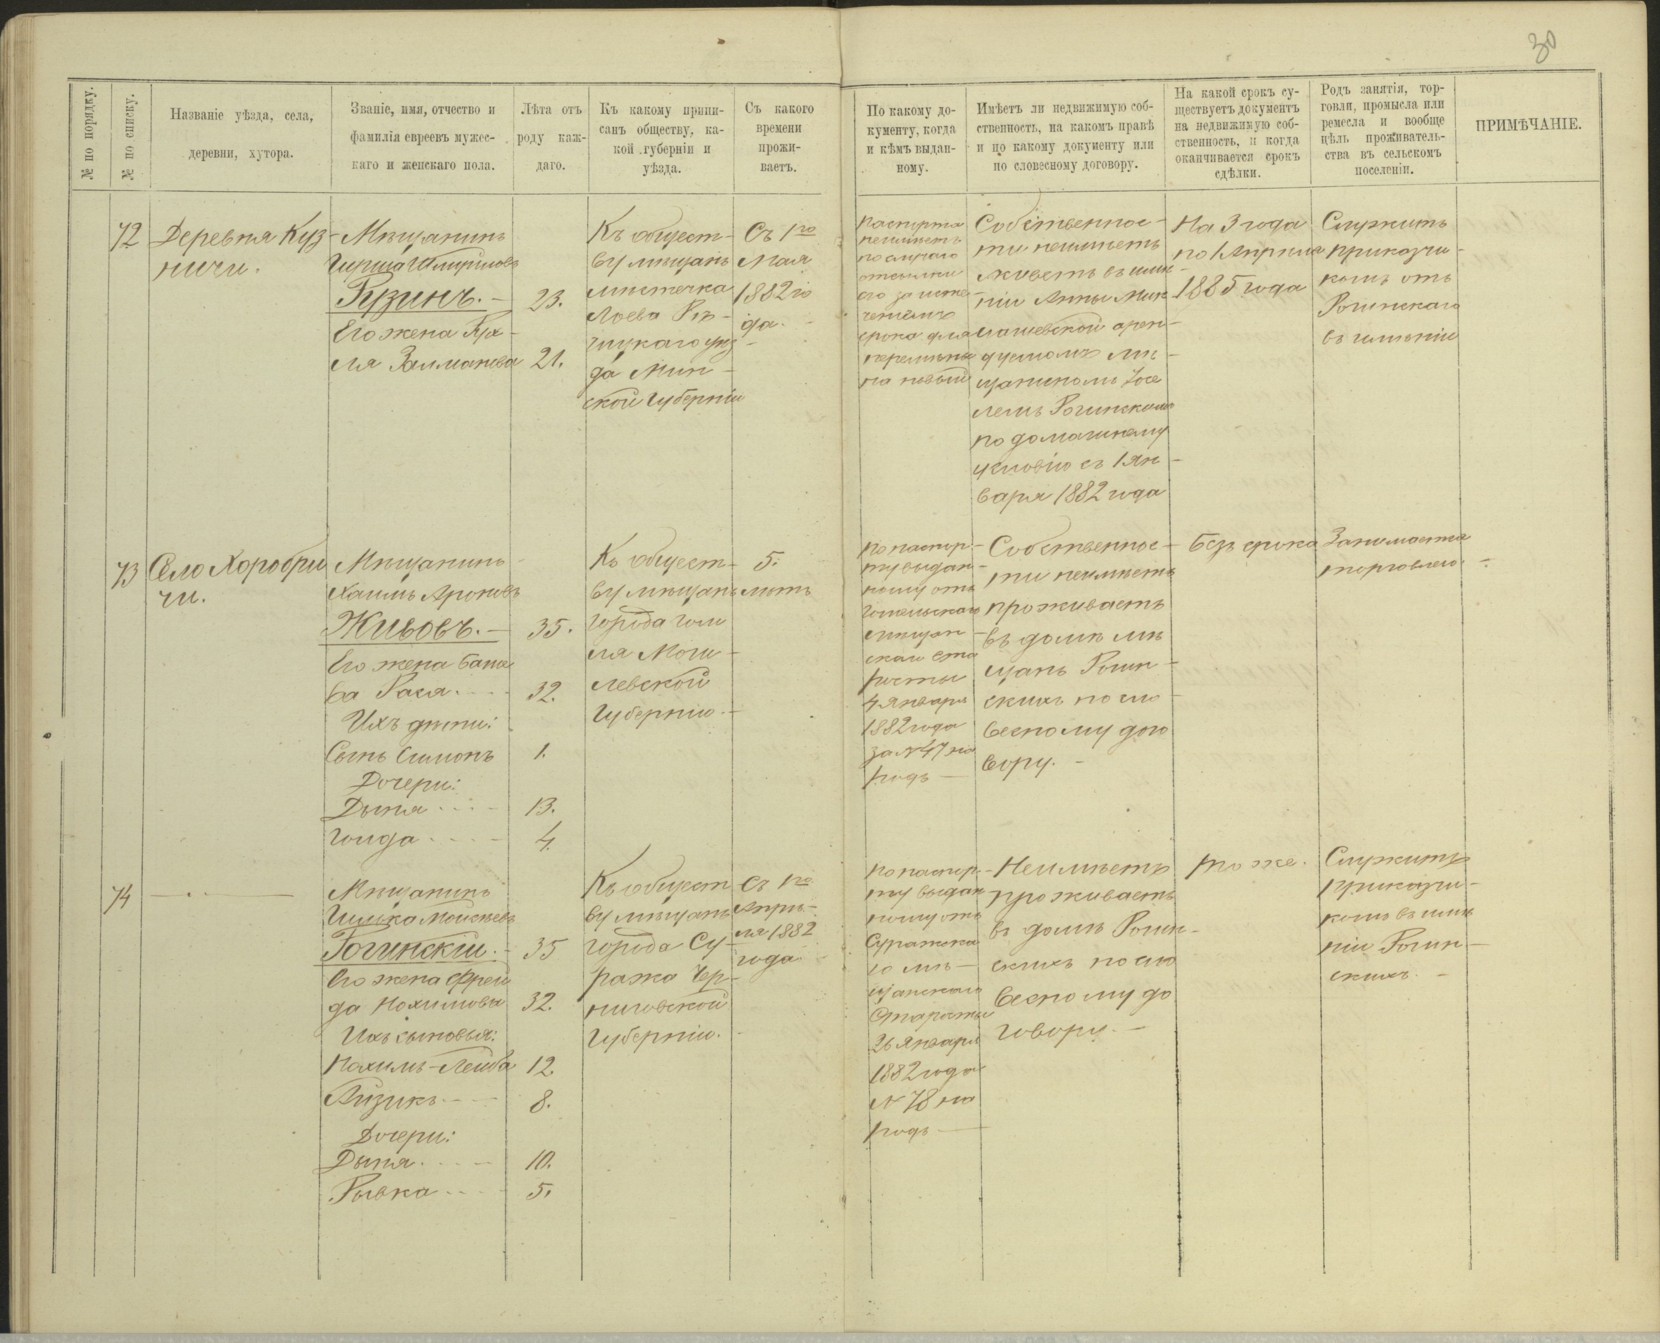 30
№ по порядку.
№ по списку.
Названіе уѣзда, села,
деревни, хутора.
Званіе, имя, отчество и
фамилія евреевъ мужес-
каго и женскаго пола.
Лѣта отъ
роду каж-
даго.
Къ какому припи-
санъ обществу, ка-
кой губерніи и
уѣзда.
Съ какого
времени
прожи-
ваетъ.
По какому до-
кументу, когда
и кѣмъ выдан-
ному.
Имѣетъ ли недвижимую соб-
ственность, на какомъ правѣ
и по какому документу или
по словесному договору.
На какой срокъ су-
ществуетъ документъ
на недвижимую соб-
ственность, и когда
оканчивается срокъ
сдѣлки.
Родъ занятія, тор-
говли, промысла или
ремесла и вообще
цѣль проживатель-
ства въ сельскомъ
поселеніи.
ПРИМѢЧАНІЕ.
72
Деревня Куз-
ничи.
Мѣщанинъ
Гирша
Рузинъ. -
Его жена Рух-
ля Залманова
23.
21.
Къ общест-
ву мѣщанъ
мѣстечка
Лоева Рѣ-
чицкаго уѣз-
да Мин-
ской Губерніи
Съ 1го
Мая
1882 го
да.
Паспорта
неимѣетъ
по случаю
отсылки
его за исте-
ченіемъ
срока для
перемѣны
на новый
Собственнос-
ти неимѣетъ
живетъ въ имѣ-
ніи Анны Мик
лашевской арен-
дуемомъ мѣ-
щаниномъ Іосе
лемъ Рогинскимъ
по домашнему
условію съ 1 Ян-
варя 1882 года
На 3 года
по 1 Апрѣля
1885 года
Служитъ
приказчи-
комъ отъ
Рогинскаго
въ имѣніи
73
Село Хоробри
чи.
Мѣщанинъ
Хаимъ Ароновъ
Живовъ. -
Его жена Бана
ва Рася.
Ихъ дѣти:
Сынъ Симонъ
Дочери:
Дыня
Голда
35.
32.
1.
13.
4.
Къ общест-
ву мѣщанъ
города Гоме
ля Моги-
левской
Губерніи. -
5.
лѣтъ
По паспор-
ту выдан-
ному отъ
Гомельскаго
мѣщан-
скаго Ста
росты
4 Января
1882 года
за №47 на
годъ
Собственнос-
ти неимѣетъ
проживаетъ
въ домѣ мѣ
щанъ Рогин-
скихъ по сло-
весному дого
вору. -
Безъ срока
Занимается
торговлею. -
74
Мѣщанинъ
Гилька Мойсѣевъ
Рогинскій. -
Его жена Фрей
да Нохимова
Ихъ сыновья:
Нохимъ-Лейба
Айзикъ
Дочери:
Дыня
Рывка
35
32.
12.
8.
10.
5.
Къ общест
ву мѣщанъ
города Су-
ража Чер-
ниговской
Губерніи.
Съ 1го
Апрѣ-
ля 1882
года
По паспор-
ту выдан-
ному отъ
Суражска
го мѣ-
щанскаго
Старосты
26 Января
1882 года
№ 78 на
годъ
Неимѣетъ
проживаетъ
въ домѣ Рогин-
скихъ по сло
весному до
говору. -
тоже.
Служитъ
приказчи-
комъ въ имѣ
ніи Рогин-
скихъ. -